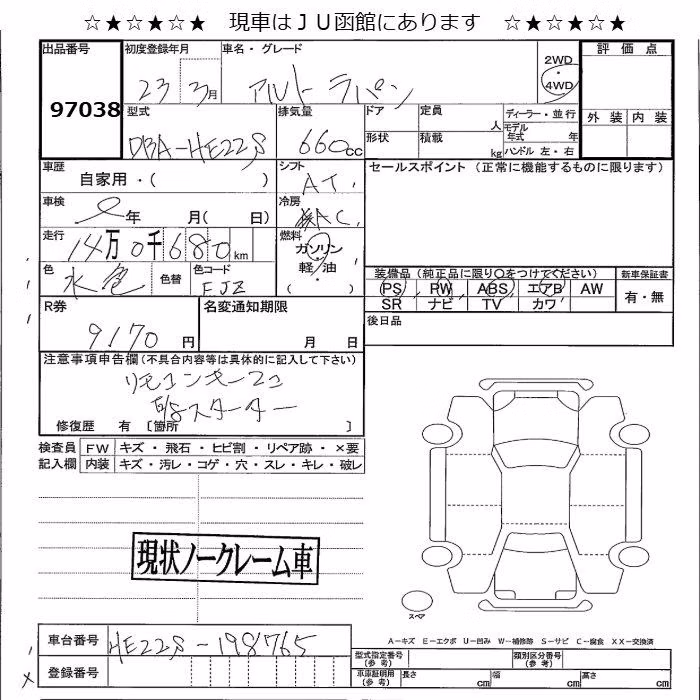 ☆★☆★☆★ 現車はＪＵ函館にあります ☆★☆★☆★
出品番号 初度登録年月 車名・グレード 2WD・4WD 評価点
97038 23年3月 アルト ラパン
型式 排気量 ドア 定員 人 ディーラー・並行 外装 内装
DBA-HE22S 660cc 形状 積載 kg モデル年式 年
ハンドル 左・右
車歴 自家用・( ) シフト AT セールスポイント (正常に機能するものに限ります)
車検 年 月( 日) 冷房 AC
走行 14万0千680km 燃料 ガソリン・軽油・( )
色 水色 色替 色コード FJZ
装備品 (純正品に限り○をつけてください) 新車保証書
PS PW ABS エアB AW 有・無
SR ナビ TV カワ
R券 名変通知期限 後日品
9170円 月 日
注意事項申告欄 (不具合内容等は具体的に記入して下さい)
リモコンキー2コ
スターター
修復歴 有 [箇所 ]
検査員 FW キズ・飛石・ヒビ割・リペア跡・×要
記入欄 内装 キズ・汚レ・コゲ・穴・スレ・キレ・破レ
現状ノークレーム車
スペア
A－キズ E－エクボ U－凹み W－補修跡 S－サビ C－腐食 XX－交換済
車台番号 HE22S-198765
型式指定番号(参考) 類別区分番号(参考)
登録番号
車車証明用(参考) 長さ cm 幅 cm 高さ cm